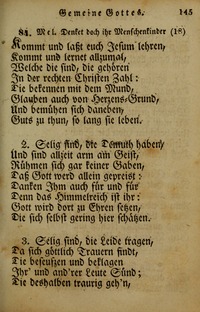 Gemeine Gottes. 145
81. Mel. Denket doch ihr Menschenkinder (18)
Kommt und laßt euch Jesum lehren,
Kommt und lernet allzumal,
Welche die sind, die gehören
In der rechten Christen Zahl:
Die bekennen mit dem Mund,
Glauben auch von Herzens-Grund,
Und bemühen sich daneben,
Guts zu thun, so lang sie leben.
2. Selig sind, die Demuth haben,
Und sind allzeit arm am Geist,
Rühmen sich gar keiner Gaben,
Daß Gott werd allein gepreist:
Danken Ihm auch für und für
Denn das Himmelreich ist ihr:
Gott wird dort zu Ehren setzen,
Die sich selbst gering hier schätzen.
3. Selig sind, die Leide tragen,
Da sich göttlich Trauern findt,
Die beseufzen und beklagen
Ihr' und and'rer Leute Sünd;
Die deshalben traurig geh'n,